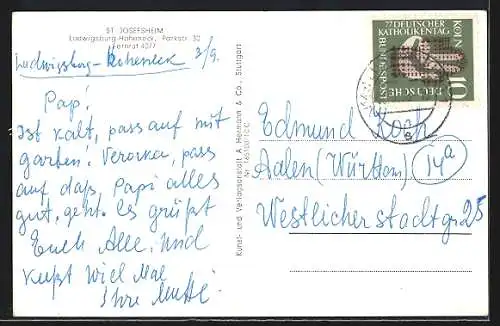 ST. JOSEFSHEIM
Ludwigsburg-Hoheneck, Parkstr. 30
Fernruf 4077
Ludwigsburg-Hoheneck 3/9.
Papi!
Ist kalt, pass auf mit
garten. pass
auf daß, Papi alles
gut, geht. Es grüßt
Euch Alle, und
kußt viel Mal
Ihre Mutti
Kunst- und Verlagsanstalt A. Herrmann & Co., Stuttgart
77. DEUTSCHER
KATHOLIKENTAG
KÖLN
DEUTSCHE
BUNDESPOST
10
Edmund Koch
Aalen (Württom) 14a
Westlicher Stadtgr 25